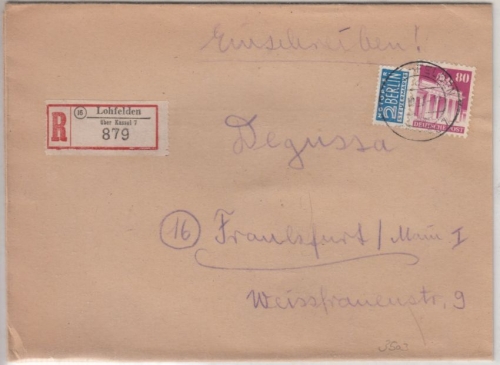 Einschreiben!
NOTOPFER
2 BERLIN
STEUERMARKE
80
DEUTSCHE POST
R
(16) Lohfelden
über Kassel 7
879
Degussa
(16) Frankfurt/Main I
Weissfrauenstr. 9